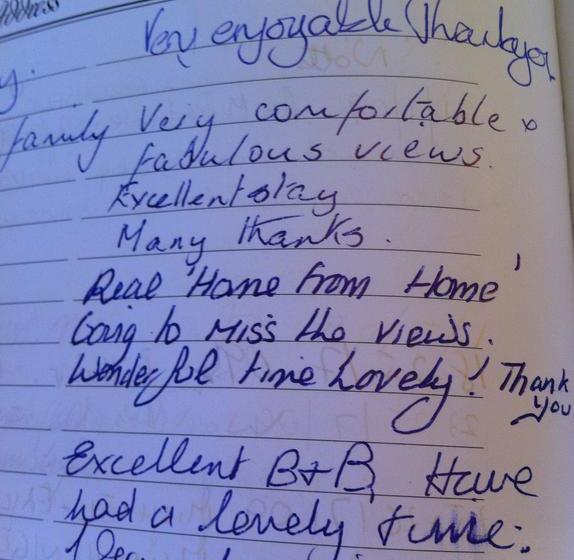 Address
Very enjoyable Thankyou
y.
family Very comfortable x
fabulous views.
Excellent stay
Many thanks.
Real 'Home from Home'
Going to Miss the views.
Wonderful time Lovely! Thank you
Excellent B+B, Have
had a lovely time.